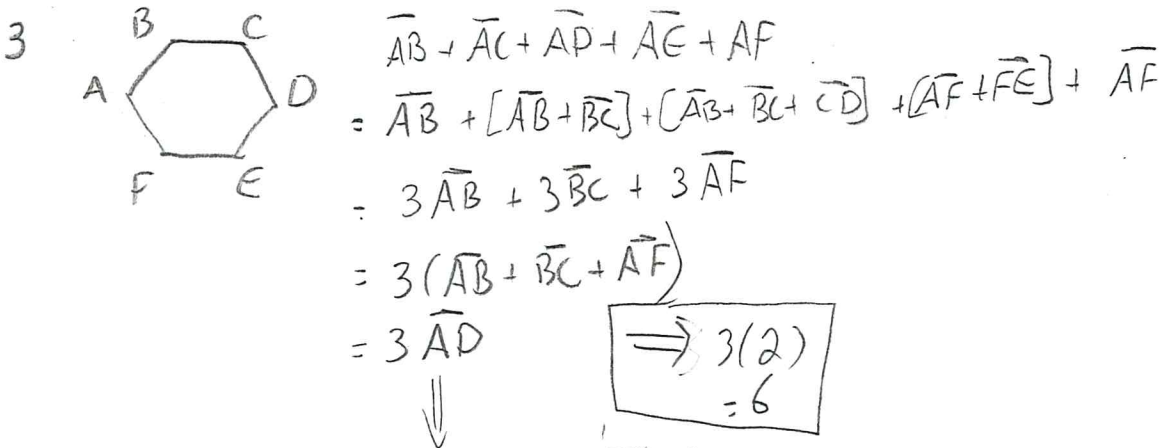 3
B C
A D
F E
AB + AC + AD + AE + AF
= AB + [AB + BC] + [AB + BC + CD] + [AF + FE] + AF
= 3AB + 3BC + 3AF
= 3(AB + BC + AF)
= 3AD
⇒ 3(2)
= 6
⇓